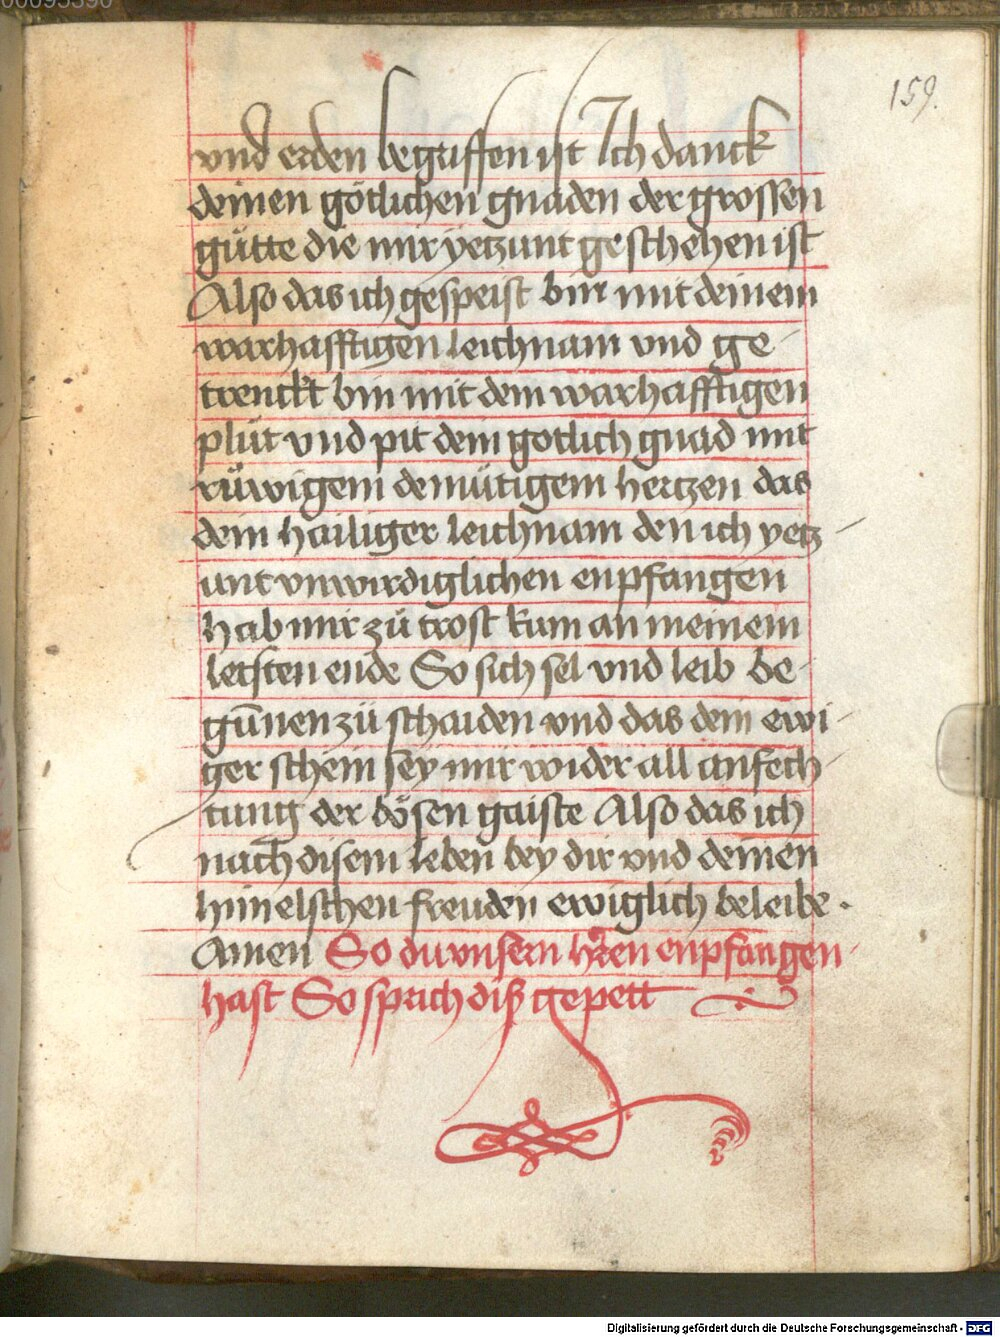 00095390
159.
vnd erden begriffen ist Ich danck
deinen götlichen gnaden der grossen
gütte die mir yetzunt geschehen ist
Also das ich gespeist bin mit deinem
warhafftigen leichnam vnd ge
trenckt bin mit dem warhafftigen
plüt vnd pit dein gotlich gnad mit
rüwigem demütigem hertzen das
dein hailiger leichnam den ich yetz
unt vnwirdiglichen enpfangen
hab mir zü trost kum an meinem
letsten ende So sich sel vnd leib be
gūnen zü schaiden vnd das dein ewi
ger schein sey mir wider all anfech
tung der bösen gaiste Also das ich
nach disem leben bey dir vnd deinen
himelschen freuden ewiglich beleibe.
Amen So du vnsern hren enpfangen
hast So sprich diß gepett
Digitalisierung gefördert durch die Deutsche Forschungsgemeinschaft - DFG